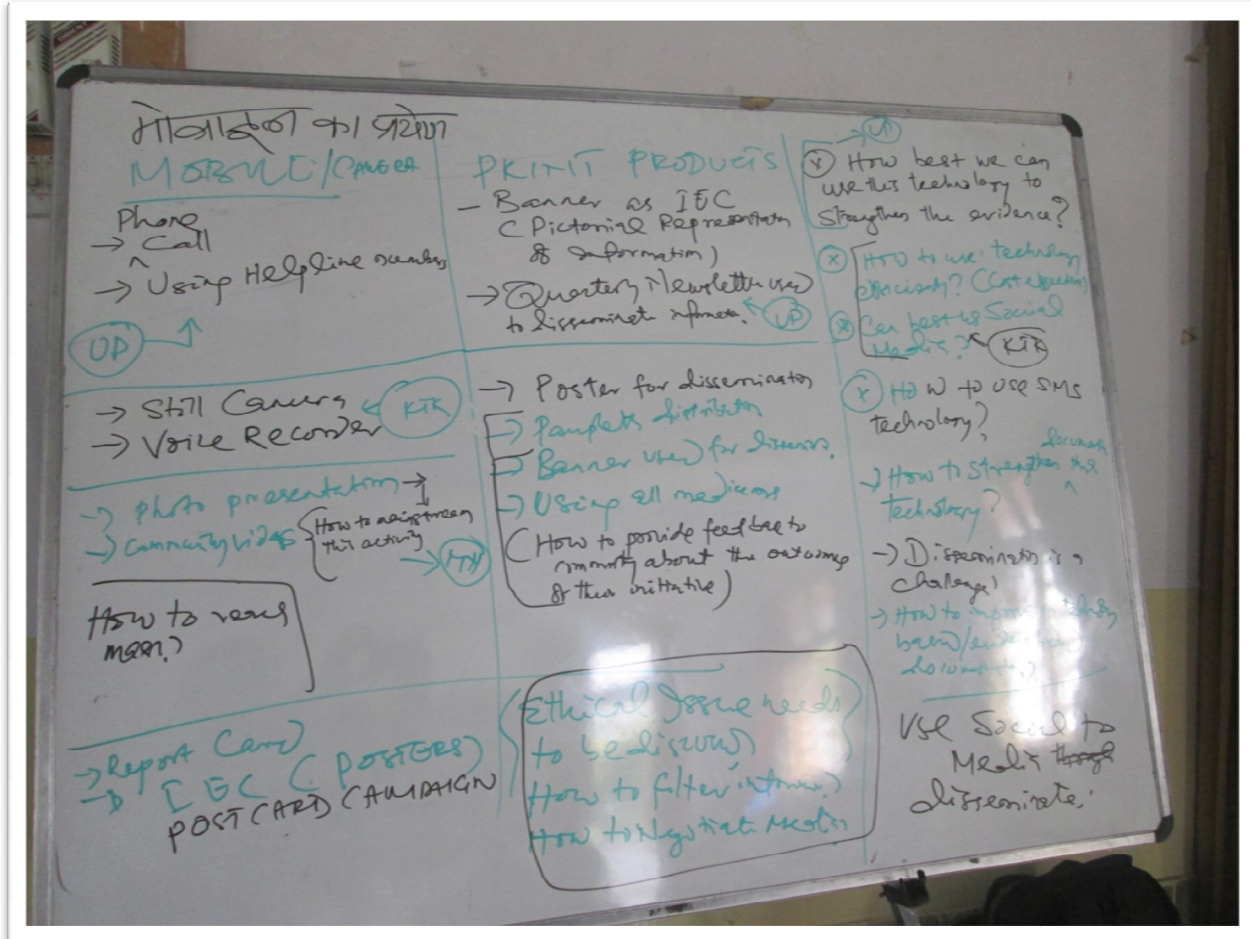 मोबाईल का प्रयोग
MOBILE/CAMERA
Phone
→ Call
^
→ Using Helpline number
UP
→ Still Camera
→ Voice Recorder
KTK
→ Photo presentation →
→ Community videos
How to mainstream
this activity
How to reach
mass?
→ Report Card
→ IEC (POSTERS)
POSTCARD CAMPAIGN
PRINT PRODUCTS
- Banner as IEC
(Pictorial Representation
of Information)
→ Quarterly Newsletter used
to disseminate
UP
→ Poster for dissemination
→ distribution
→ Banner used for
→ Using all mediums
(How to provide feedback to
community about the outcome
of their initiative)
Ethical Issue needs
to be
How to filter
How to Negotiate Media
UP
x How best we can
use this technology to
strengthen the evidence?
x How to use technology
efficiently? (Cost effective)
x Can best use Social
Media?
KTK
x How to use SMS
technology?
→ How to strengthen the
technology?
→ Dissemination is a
challenge!
→ How to
Use Social to
Media
disseminate.